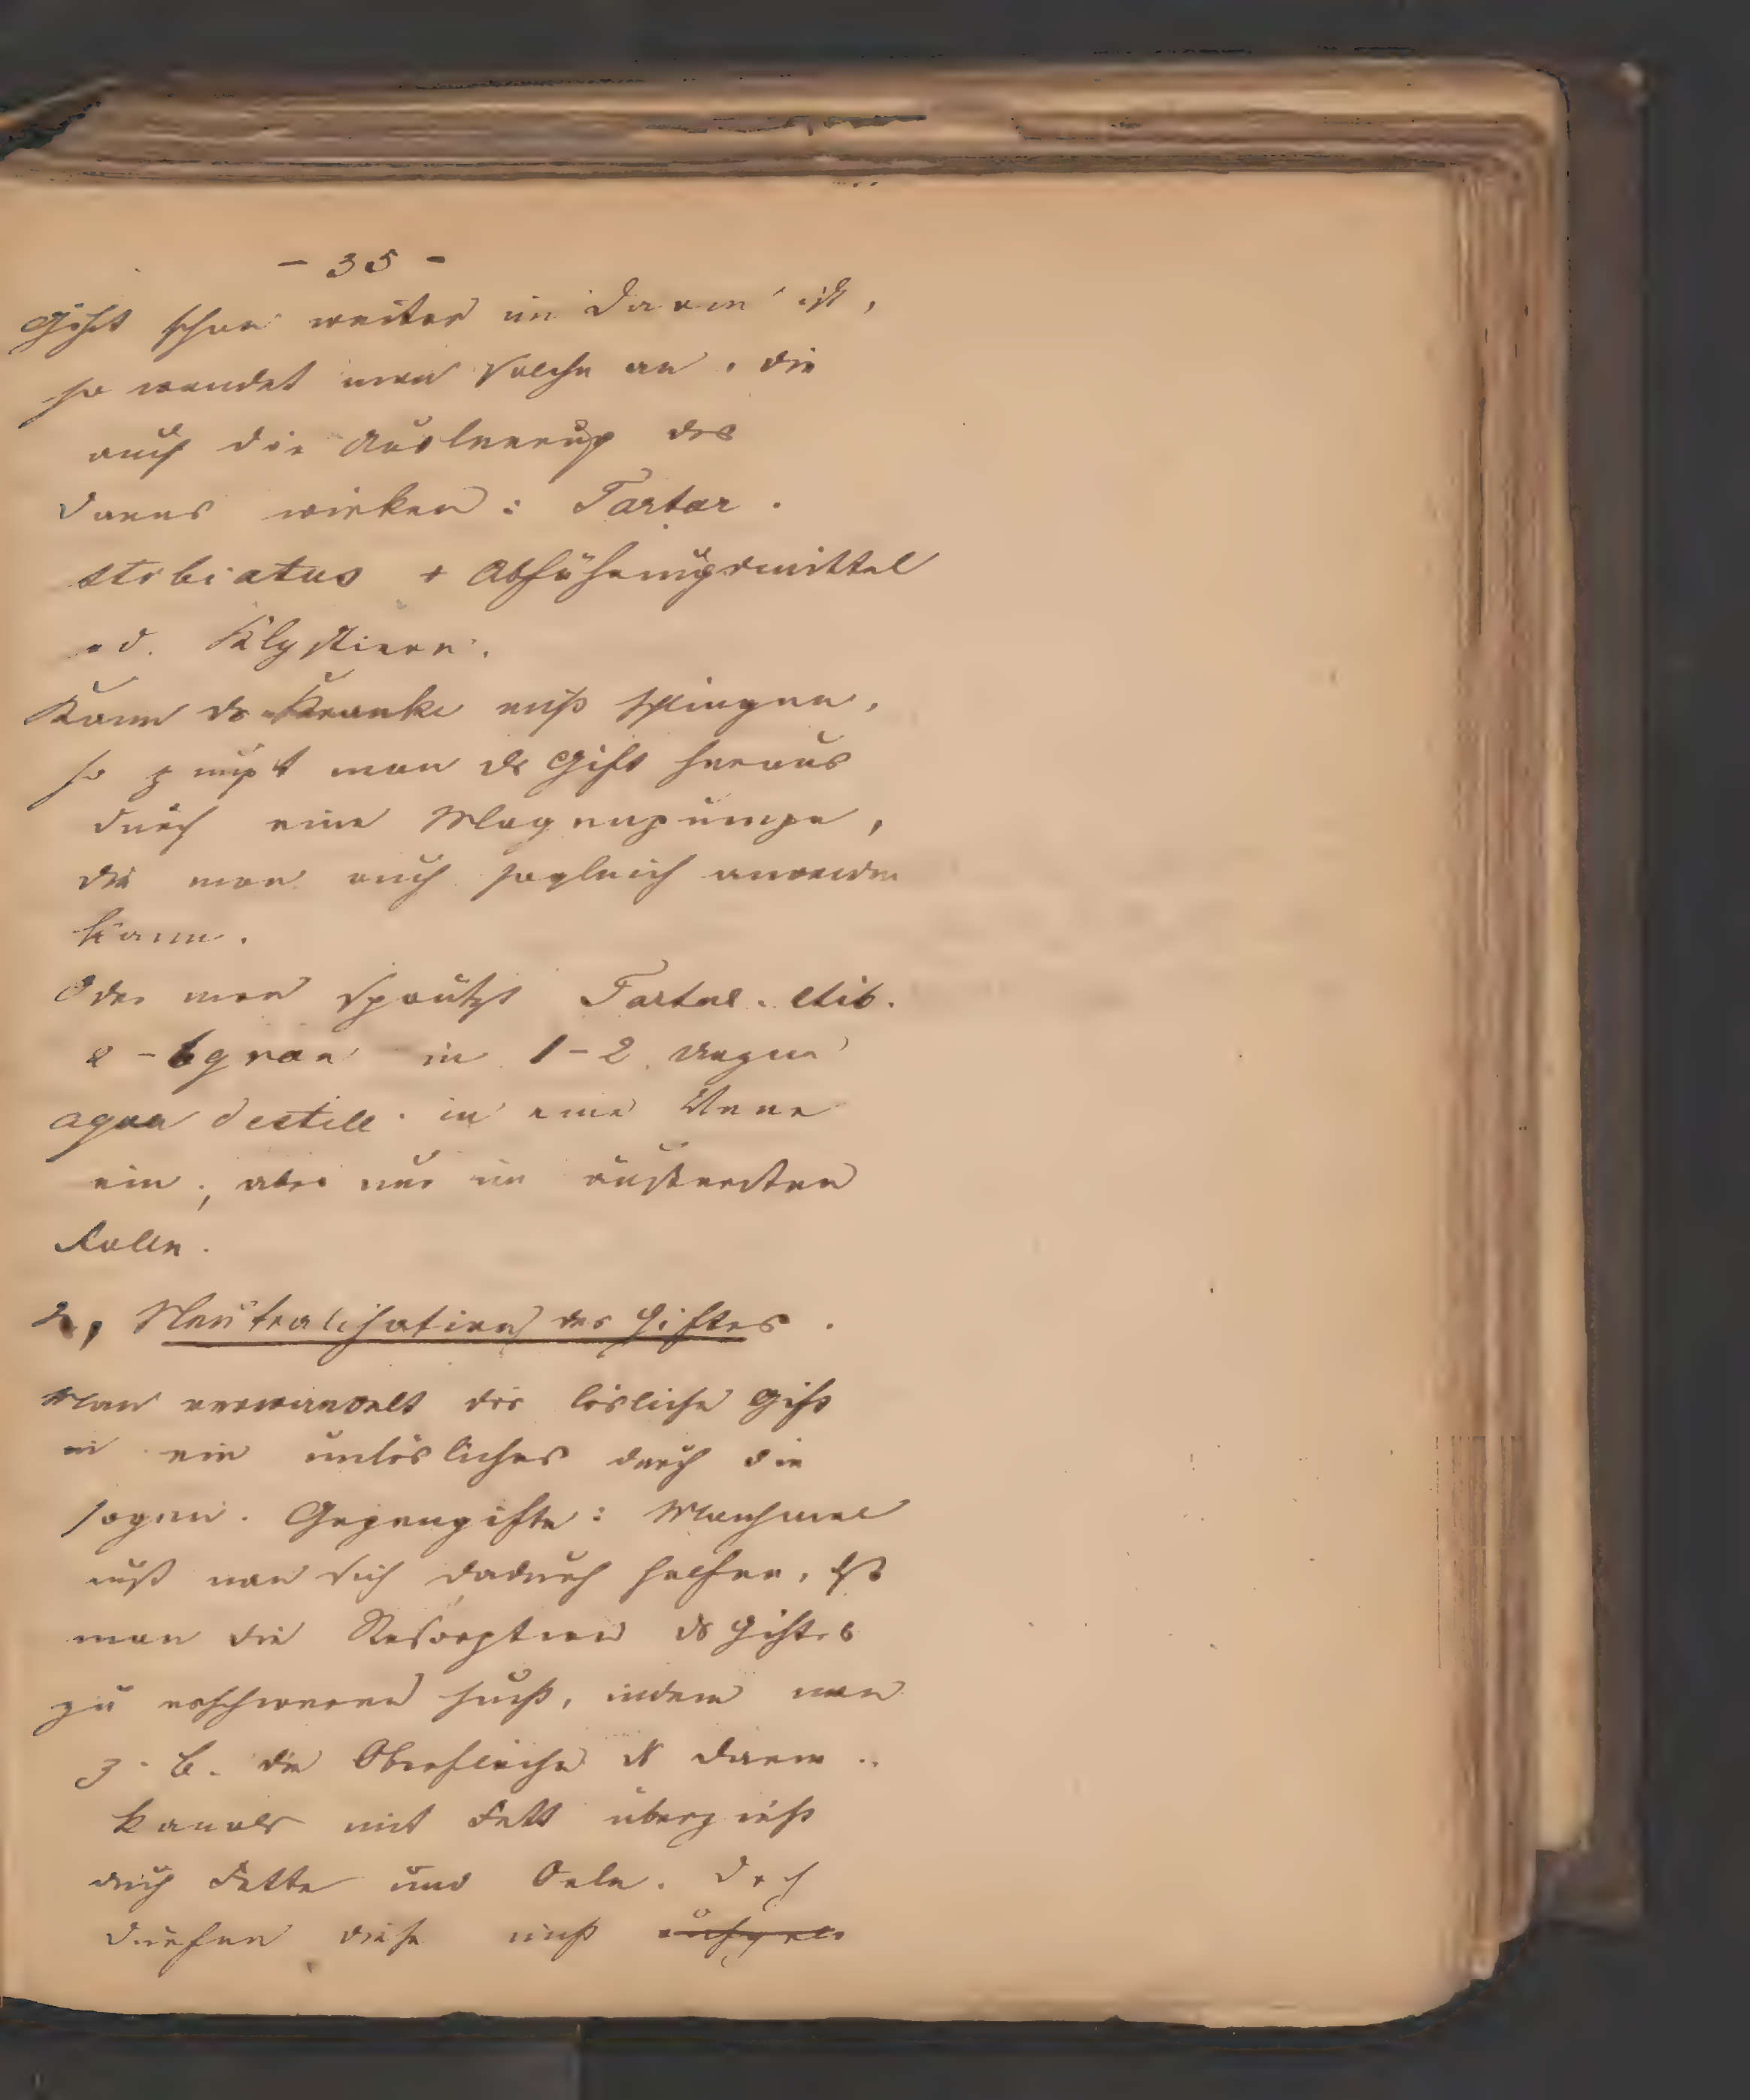 - 35 -
Gift schon weiter im Darm ist,
so wendet man solche an, die
auch die Ausleerung des
Darms wirken: Tartar.
stibiatus + Abführungsmittel
od. Klystiere.
Kann der Kranke nicht schlingen,
so pumpt man das Gift heraus
durch eine Magenpumpe,
die man auch sogleich anwenden
kann.
Oder man spritzt Tartar. stib.
2 - 6 gran in 1-2 Unzen
aqua destill. in eine Vene
ein; aber nur im äußersten
Falle.
2, Neutralisation des Giftes.
Man verwandelt das lösliche Gift
in ein unlösliches durch die
sogen. Gegengifte: Manchmal
muß man sich dadurch helfen, daß
man die Resorption des Giftes
zu erschweren sucht, indem man
z. B. die Oberfläche des Darm-
kanals mit Fett überzieht
durch Fette und Oele. Doch
dürfen diese nicht